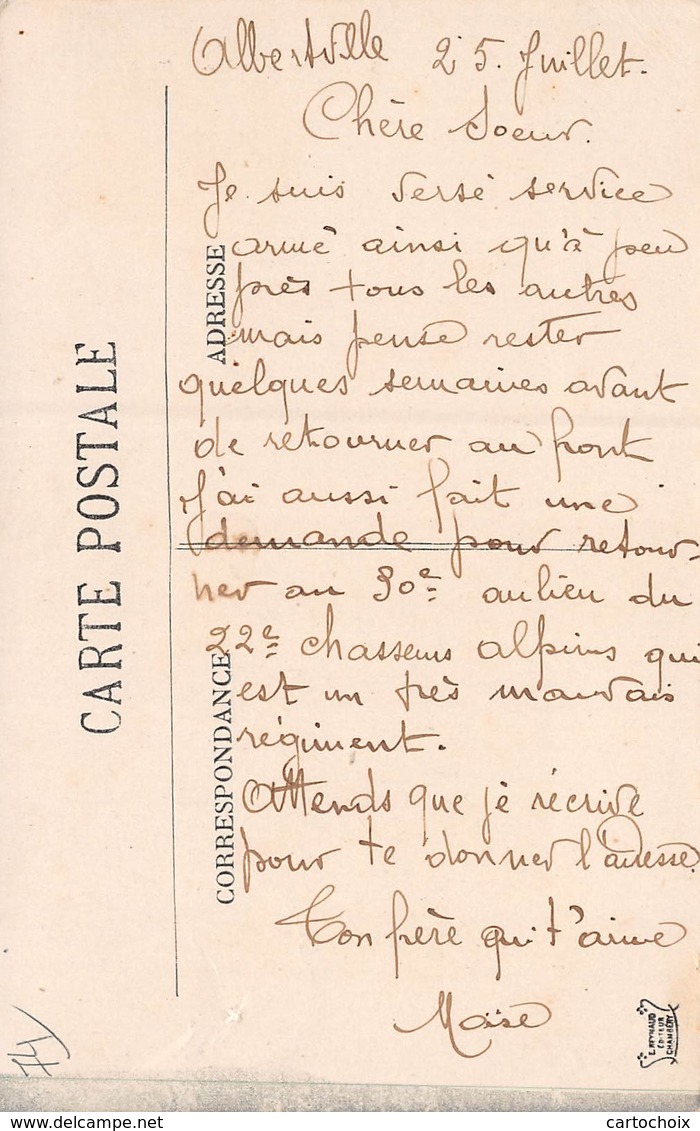 Albertville 25. Juillet.
Chère Soeur.
Je suis versé service
armé ainsi qu'à peu
près tous les autres
mais pense rester
quelques semaines avant
de retourner au front
J'ai aussi fait une
demande pour retour-
ner au 30e au lieu du
22e chasseurs alpins qui
est un très mauvais
régiment.
Attends que je récrive
pour te donner l'adresse.
Ton frère qui t'aime
Moïse
CARTE POSTALE
ADRESSE
CORRESPONDANCE
L. REYNAUD
ÉDITEUR
CHAMBÉRY
74
www.delcampe.net
cartochoix